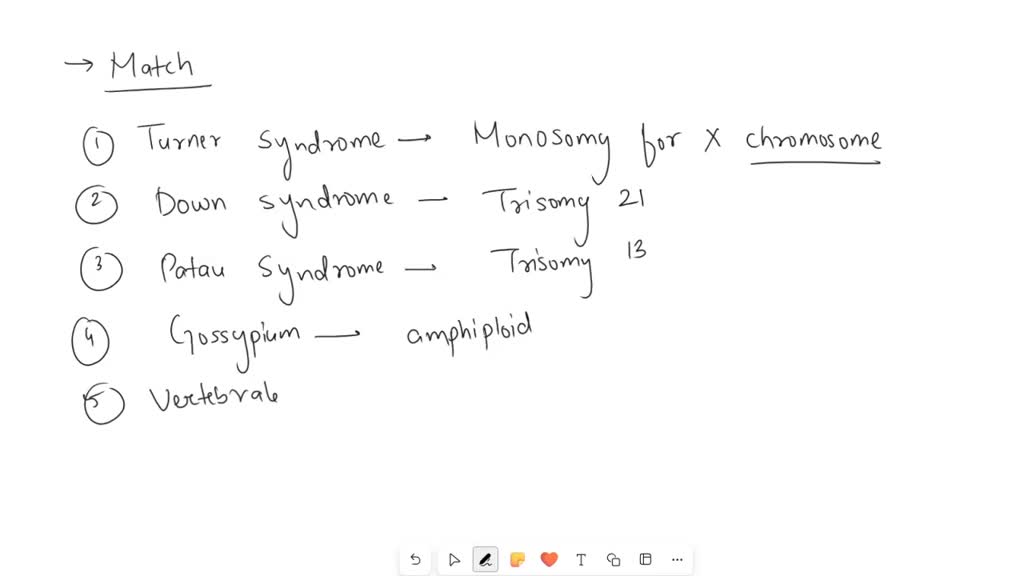 → Match
① Turner syndrome — Monosomy for X chromosome
② Down syndrome — Trisomy 21
③ Patau syndrome — Trisomy 13
④ Gossypium — amphiploid
⑤ Vertebrate
T